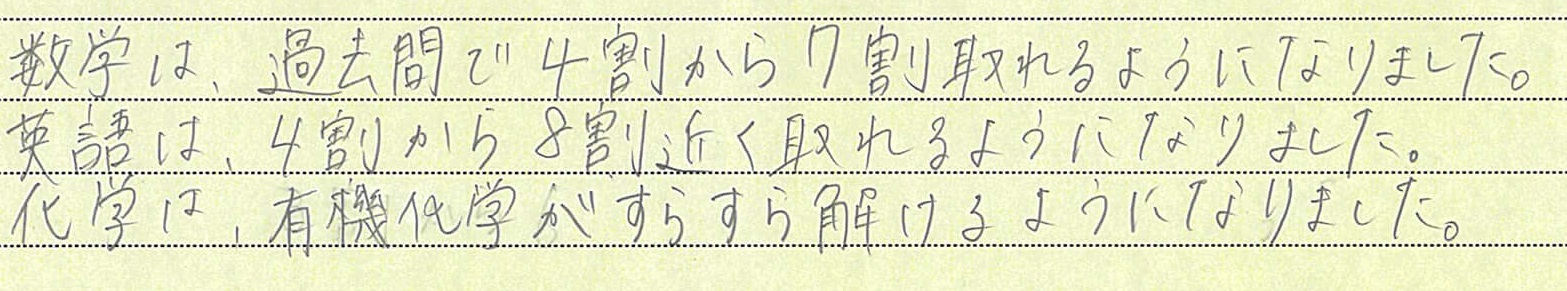 数学は、過去問で4割から7割取れるようになりました。
英語は、4割から8割近く取れるようになりました。
化学は、有機化学がすらすら解けるようになりました。